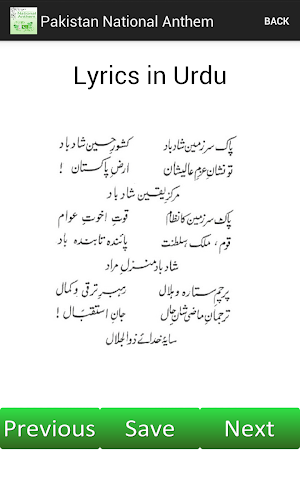 Pakistan National Anthem BACK
Lyrics in Urdu
پاک سرزمین شاد باد کشورِ حسین شاد باد
تو نشانِ عزمِ عالیشان ارضِ پاکستان !
مرکزِ یقین شاد باد
پاک سرزمین کا نظام قوتِ اخوتِ عوام
قوم ، ملک ، سلطنت پائندہ تابندہ باد
شاد باد منزلِ مراد
پرچمِ ستارہ و ہلال رہبرِ ترقی و کمال
ترجمانِ ماضی شانِ حال جانِ استقبال !
سایۂ خدائے ذوالجلال
Previous Save Next